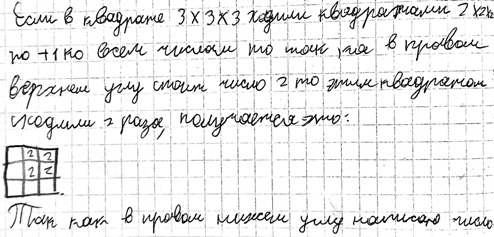 Если в квадрате 3×3×3 ходили квадратами 2×2×
по +1 ко всем числам то так, на в правом
верхнем углу стоит число 2 то этим квадратом
сходили 2 раза, получается это:
2 2
2 2
Так как в правом нижнем углу написано число